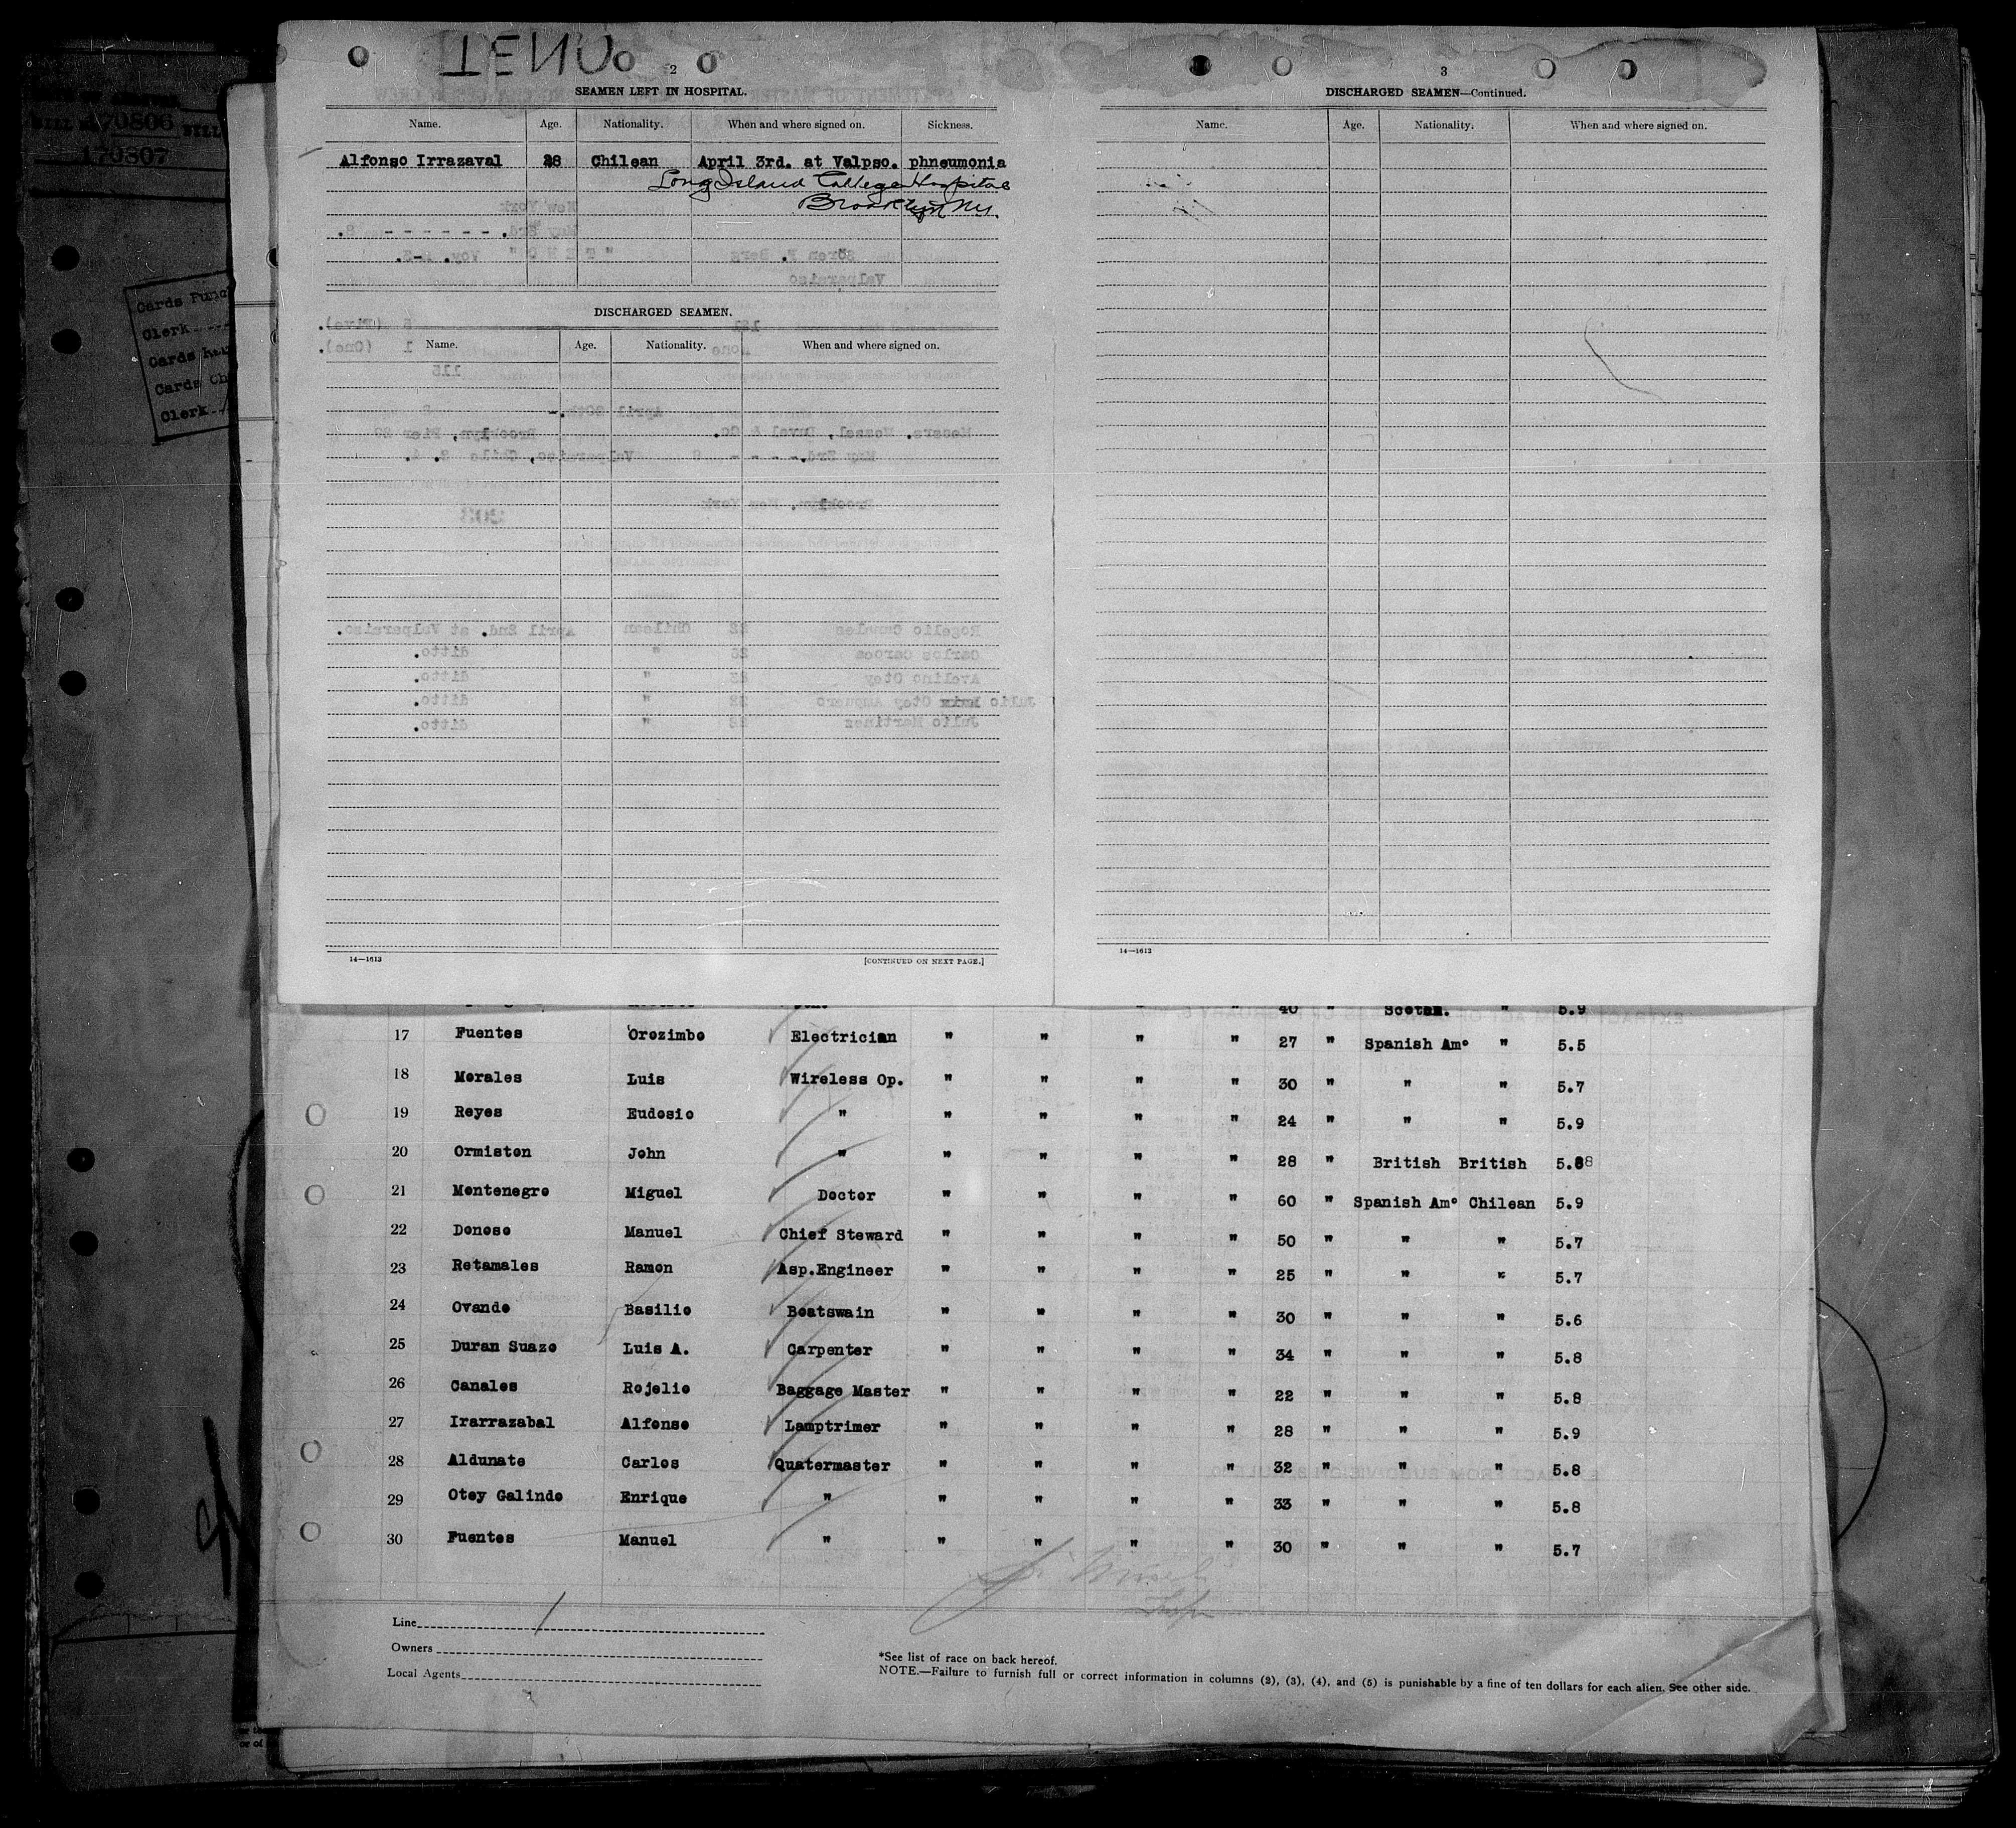 170806
170807
Cards Punc
Clerk
Cards
Cards Ch
Clerk
TENO
2
SEAMEN LEFT IN HOSPITAL.
Name. Age. Nationality. When and where signed on. Sickness.
Alfonso Irrazaval 28 Chilean April 3rd. at Valpso. phneumonia
Long Island College Hospital
Brooklyn NY.
DISCHARGED SEAMEN.
Name. Age. Nationality. When and where signed on.
14—1613 [CONTINUED ON NEXT PAGE.]
3
DISCHARGED SEAMEN—Continued.
Name. Age. Nationality. When and where signed on.
14—1613
40 " Scotch. " 5.9
17 Fuentes Orozimbo Electrician " " " " 27 " Spanish Amº " 5.5
18 Morales Luis Wireless Op. " " " " 30 " " " 5.7
19 Reyes Eudosio " " " " " 24 " " " 5.9
20 Ormiston John " " " " " 28 " British British 5.8
21 Montenegro Miguel Doctor " " " " 60 " Spanish Amº Chilean 5.9
22 Donoso Manuel Chief Steward " " " " 50 " " " 5.7
23 Retamales Ramon Asp.Engineer " " " " 25 " " " 5.7
24 Ovando Basilio Boatswain " " " " 30 " " " 5.6
25 Duran Suazo Luis A. Carpenter " " " " 34 " " " 5.8
26 Canales Rojelio Baggage Master " " " " 22 " " " 5.8
27 Irarrazabal Alfonso Lamptrimer " " " " 28 " " " 5.9
28 Aldunate Carlos Quatermaster " " " " 32 " " " 5.8
29 Otey Galindo Enrique " " " " " 33 " " " 5.8
30 Fuentes Manuel " " " " " 30 " " " 5.7
Line
Owners
Local Agents
*See list of race on back hereof.
NOTE.—Failure to furnish full or correct information in columns (2), (3), (4), and (5) is punishable by a fine of ten dollars for each alien. See other side.